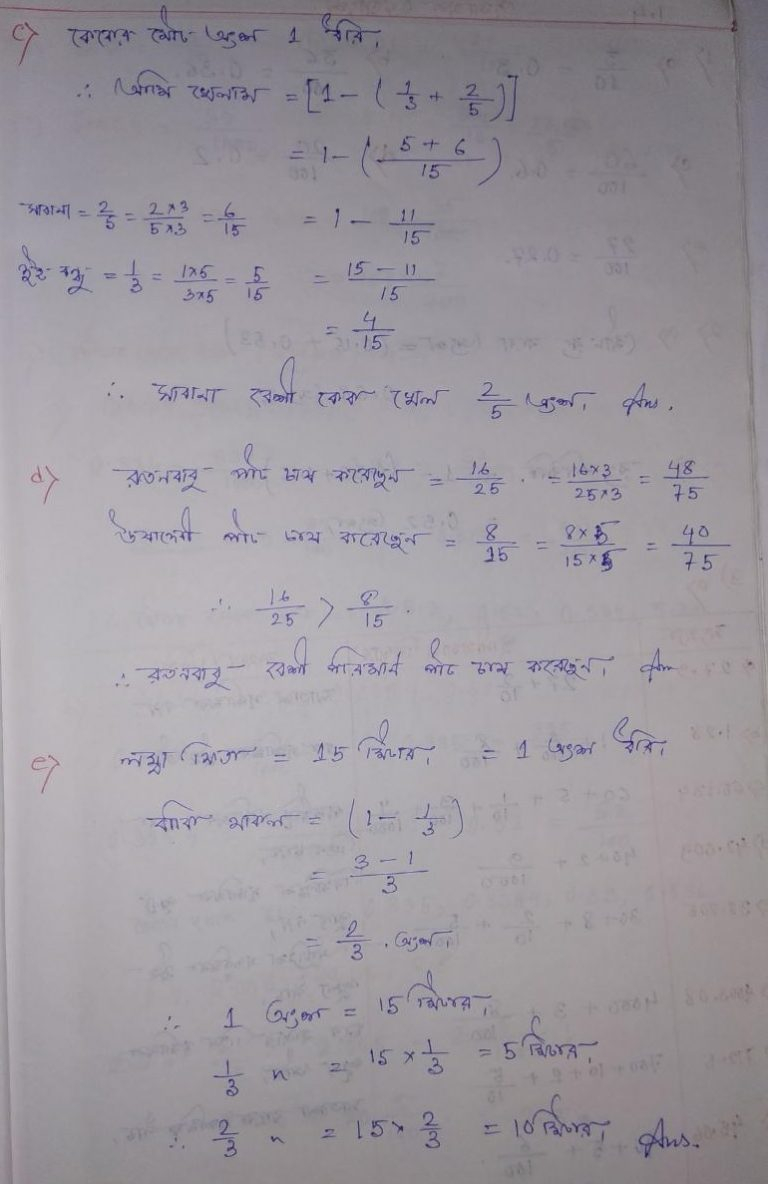 c) কেকের মোট অংশ 1 ধরি,
∴ আমি খেলাম = [1 - ( 1/3 + 2/5 )]
= 1 - ( 5 + 6 / 15 )
সাবানা = 2/5 = 2×3 / 5×3 = 6/15 = 1 - 11/15
দুই বন্ধু = 1/3 = 1×5 / 3×5 = 5/15 = 15 - 11 / 15
= 4/15
∴ সাবানা বেশী কেক খেল 2/5 অংশ, Ans.
d) রতনবাবু পাট চাষ করেছেন = 16/25 . = 16×3 / 25×3 = 48/75
উমাদেবী পাট চাষ করেছেন = 8/15 = 8×5 / 15×5 = 40/75
∴ 16/25 > 8/15 .
∴ রতনবাবু বেশী পরিমান পাট চাষ করেছেন, Ans
e) লম্বা ফিতা = 15 মিটার, = 1 অংশ ধরি,
বাকি থাকল = (1 - 1/3)
= 3 - 1 / 3
= 2/3 . অংশ,
∴ 1 অংশ = 15 মিটার,
1/3 " = 15 × 1/3 = 5 মিটার,
∴ 2/3 " = 15 × 2/3 = 10 মিটার, Ans.